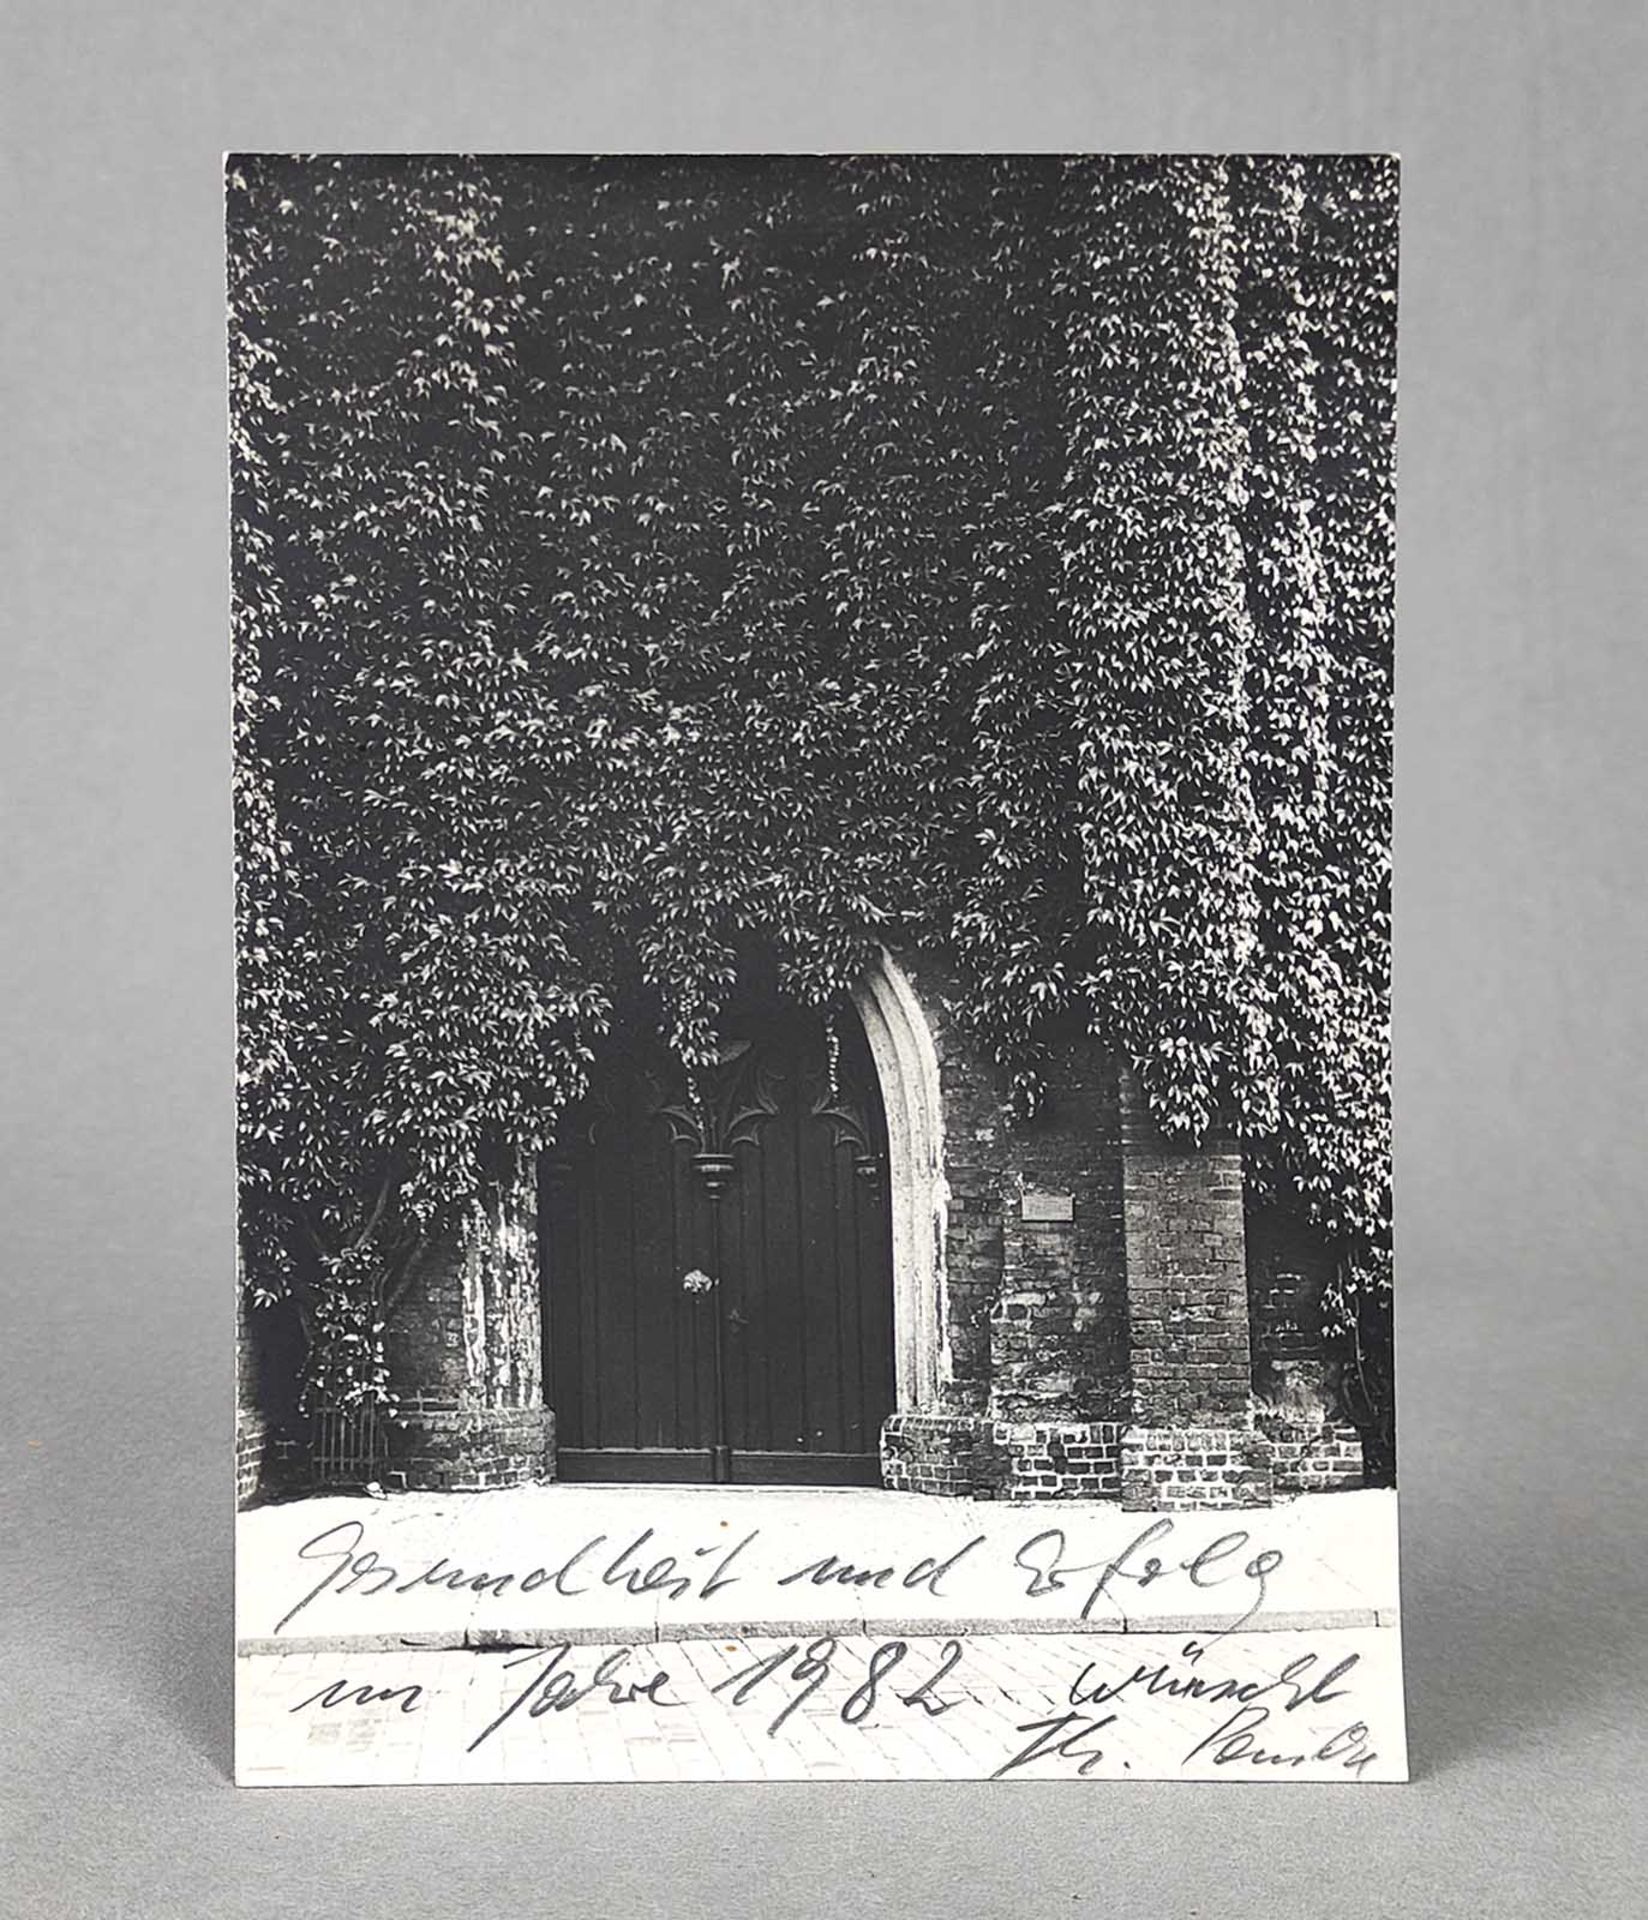 Gesundheit und Erfolg
im Jahre 1982 wünscht
Th.